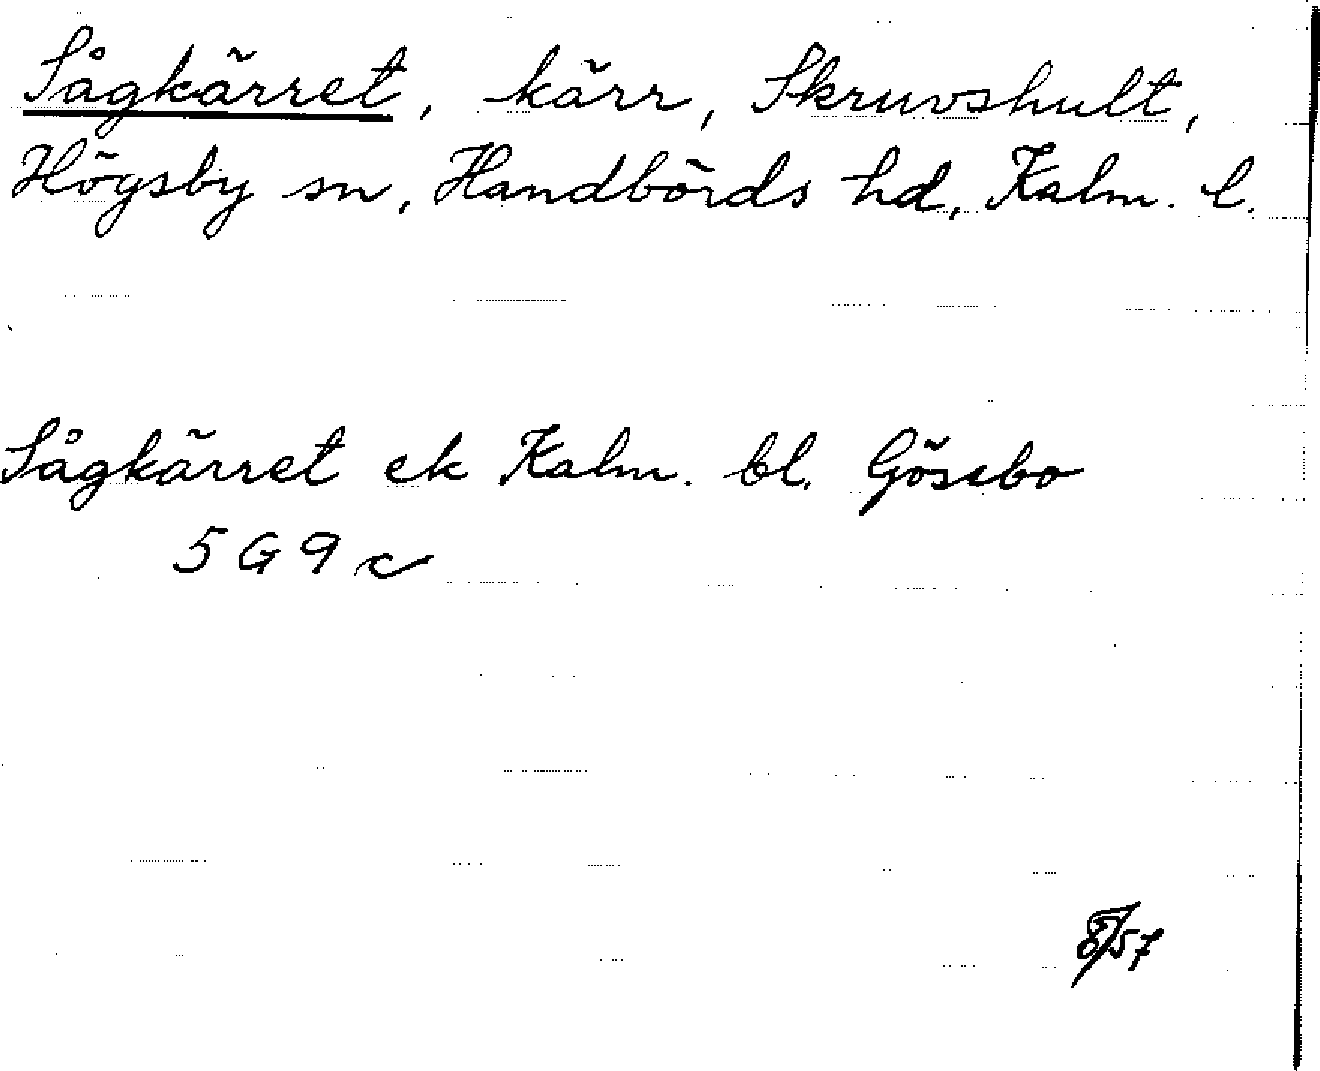 Sågkärret, kärr, Skruvshult,
Högsby sn, Handbörds hd, Kalm. l.
Sågkärret ek Kalm. bl. Gössbo
5 G 9 c